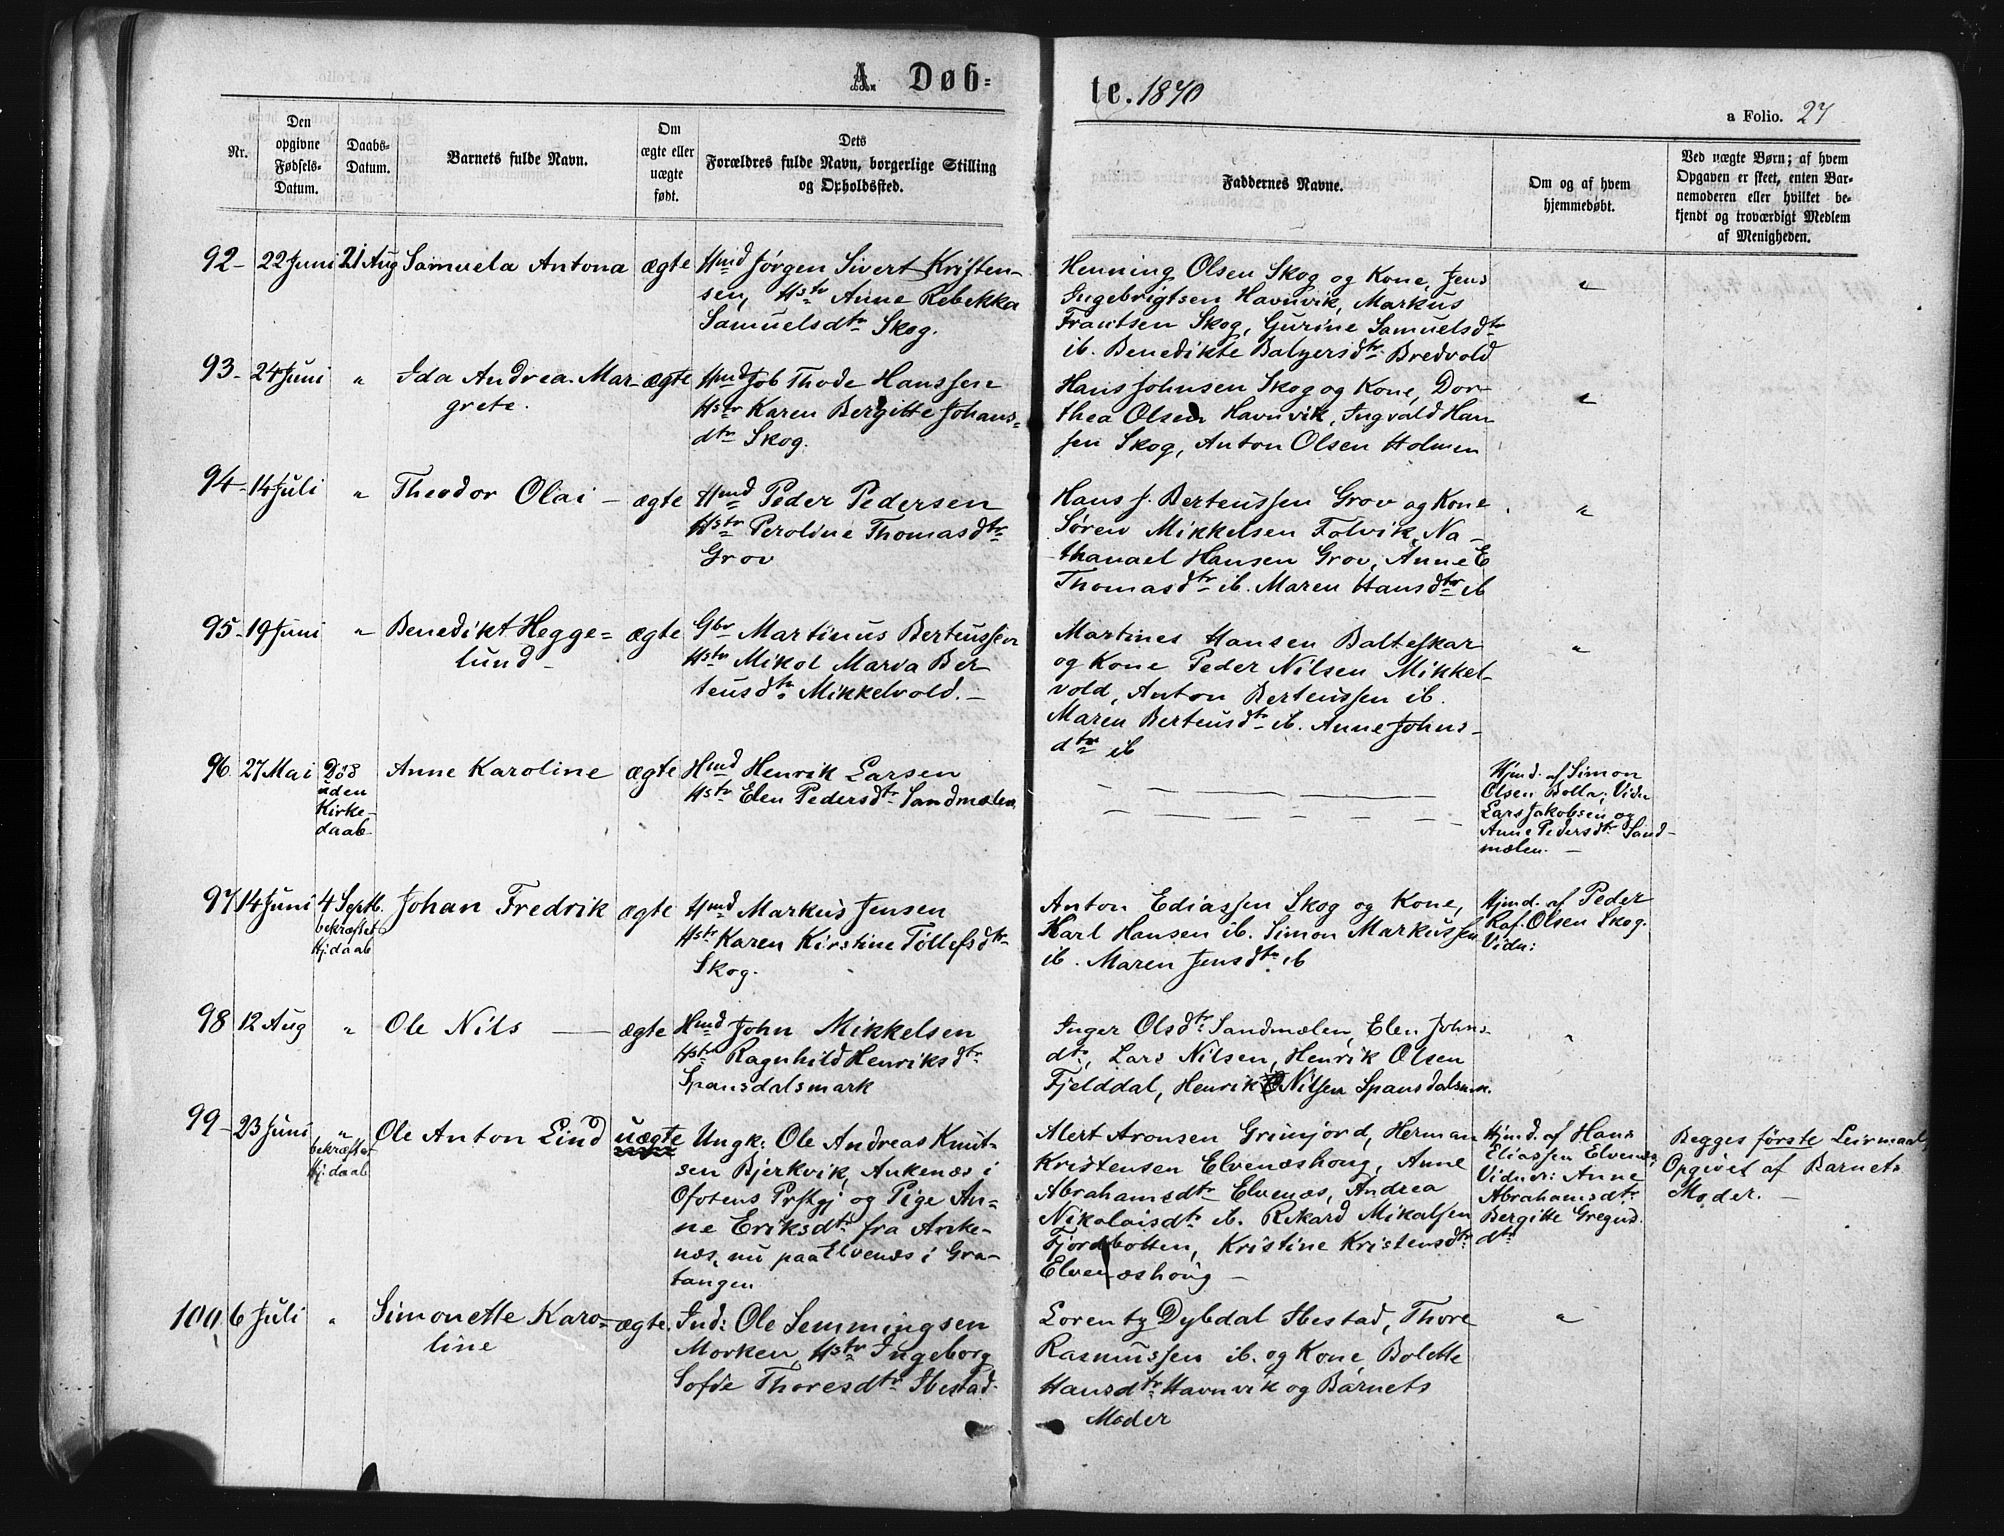 A. Døbte. 1870
a Folio. 27
Nr.
Den opgivne Fødsels-Datum.
Daabs-Datum.
Barnets fulde Navn.
Om ægte eller uægte født.
Dets Forældres fulde Navn, borgerlige Stilling og Opholdssted.
Faddernes Navne.
Om og af hvem hjemmedøbt.
Ved uægte Børn; af hvem Opgaven er skeet, enten Barnemoderen eller hvilket bekjendt og troværdigt Medlem af Menigheden.
92- 22 Juni 21 Aug Samuela Antona ægte Hmd Jørgen Sivert Kristen-
sen, Hstr Anne Rebekka
Samuelsdtr Skog.
Henning Olsen Skog og Kone, Jens
Ingebrigtsen Havnvik, Markus
Frantsen Skog, Gurine Samuelsdtr
ib. Benedikte Balzersdtr Bredvold
"
93- 24 Juni " Ida Andrea Mar-
grete.
ægte Hmd Job Thode Hanssen
Hstr Karen Bergitte Johans=
dtr Skog.
Hans Johnsen Skog og Kone, Dor-
thea Olsen Havnvik, Ingvald Han
sen Skog, Anton Olsen Holmen
"
94- 14 Juli " Theodor Olai - ægte Hmd Peder Pedersen
Hstr Peroline Thomasdtr
Grov
Hans J. Berteussen Grov og Kone
Søren Mikkelsen Folvik, Na-
thanael Hansen Grov, Anne E
Thomasdtr ib. Maren Hansdtr ib
"
95- 19 Juni " Benedikt Hegge=
lund -
ægte Gbr Martinus Berteussen
Hstr Mikol Marva Ber
teusdtr Mikkelvold. -
Martines Hansen Balteskar
og Kone Peder Nilsen Mikkel-
vold, Anton Berteussen ib.
Maren Berteusdtr ib. Anne Johns-
dtr ib
"
96 27 Mai Død
uden
Kirke-
daab
Anne Karoline ægte Hmd Henrik Larsen
Hstr Elen Pedersdtr Sandmælen
Hjmd. af Simon
Olsen Bolla; Vidn
Lars Jakobsen og
Anne Pedersdtr Sand-
mælen. -
97 14 Juni 4 Septb.
bekræftet
Hj: daab
Johan Fredrik ægte Hmd Markus Jensen
Hstr Karen Kirstine Tollefsdtr
Skog.
Anton Ediassen Skog og Kone,
Karl Hansen ib. Simon Markussen
ib. Maren Jensdtr ib
Hjmd. af Peder
Raf. Olsen Skog.
Vidn:
98 12 Aug " Ole Nils ægte Hmd John Mikkelsen
Hstr Ragnhild Henriksdtr
Spansdalsmark
Inger Olsdtr Sandmælen, Elen Johns-
dtr, Lars Nilsen, Henrik Olsen
Fjelddal, Henrik Nilsen Spansdalsmk.
"
99- 23 Juni "
bekræftet
Hj: daab
Ole Anton Lind uægte Ungk: Ole Andreas Knut-
sen Bjerkvik, Ankenæs i
Ofotens Prstgj og Pige An-
ne Eriksdtr fra Anke-
næs, nu paa Elvenæs i Gra-
tangen
Alert Aronsen Grimjord, Herman
Kristensen Elvenæshoug, Anne
Abrahamsdtr Elvenæs, Andrea
Nikolaisdtr ib. Rikard Mikalsen
Fjordbotten, Kristine Kristensdtr
Elvenæshoug -
Hjmd. af Hans
Eliassen Elvenæs,
Vidner: Anne
Abrahamsdtr
Bergitte Gregus
dtr
Begges første Leirmaal,
Opgivet af Barnets
Moder. -
100. 6 Juli " Simonette Karo-
line
ægte. Ind: Ole Semmingsen
Morken, Hstr Ingeborg
Sofie Thoresdtr Ibestad.
Lorentz Dybdal Ibestad, Thore
Rasmussen ib. og Kone, Bolette
Hansdtr Havnvik og Barnets
Moder
"